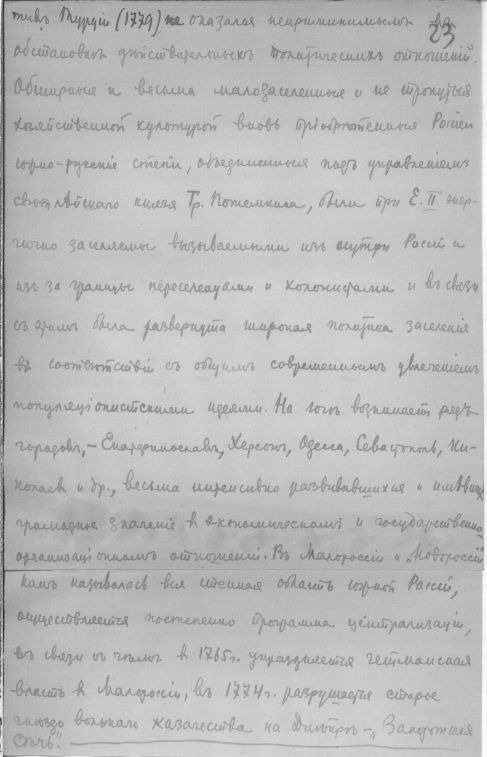 23
тивъ Турціи (1779), не оказался непримиримымъ въ
обстановкѣ дѣйствительныхъ политическихъ отношеній.
Обширныя и весьма малозаселенныя и не тронутыя
хозяйственной культурой вновь пріобрѣтенныя Росіей
южно-русскіе степи, объединенныя подъ управленіемъ
свѣтлѣйшаго князя Гр. Потемкина, были при Е. II энер-
гично заселяемы вызываемыми изъ внутри Россіи и
изъ за границы переселенцами и колонистами и въ связи
съ этимъ была развернута широкая политика заселенія
въ соотвѣтствіи съ общимъ современнымъ увлеченіемъ
популяціонистскими идеями. На югѣ возникаетъ рядъ
городовъ, – Екатеринославъ, Херсонъ, Одесса, Севастополь, Ни-
колаевъ и др., весьма интенсивно развивавшихся и имѣвшихъ
громадное значеніе въ экономическомъ и государственно-
организаціонномъ отношеніи. Въ Малороссіи и „Новороссіи"
какъ называлась вся степная область южной Россіи,
осуществляется постепенно программа централизаціи,
въ связи съ чѣмъ въ 1765 г. упраздняется гетманская
власть въ Малороссіи, въ 1774 г. разрушается старое
гнѣздо вольнаго казачества на Днѣпрѣ – „Запорожская
Сѣчь".